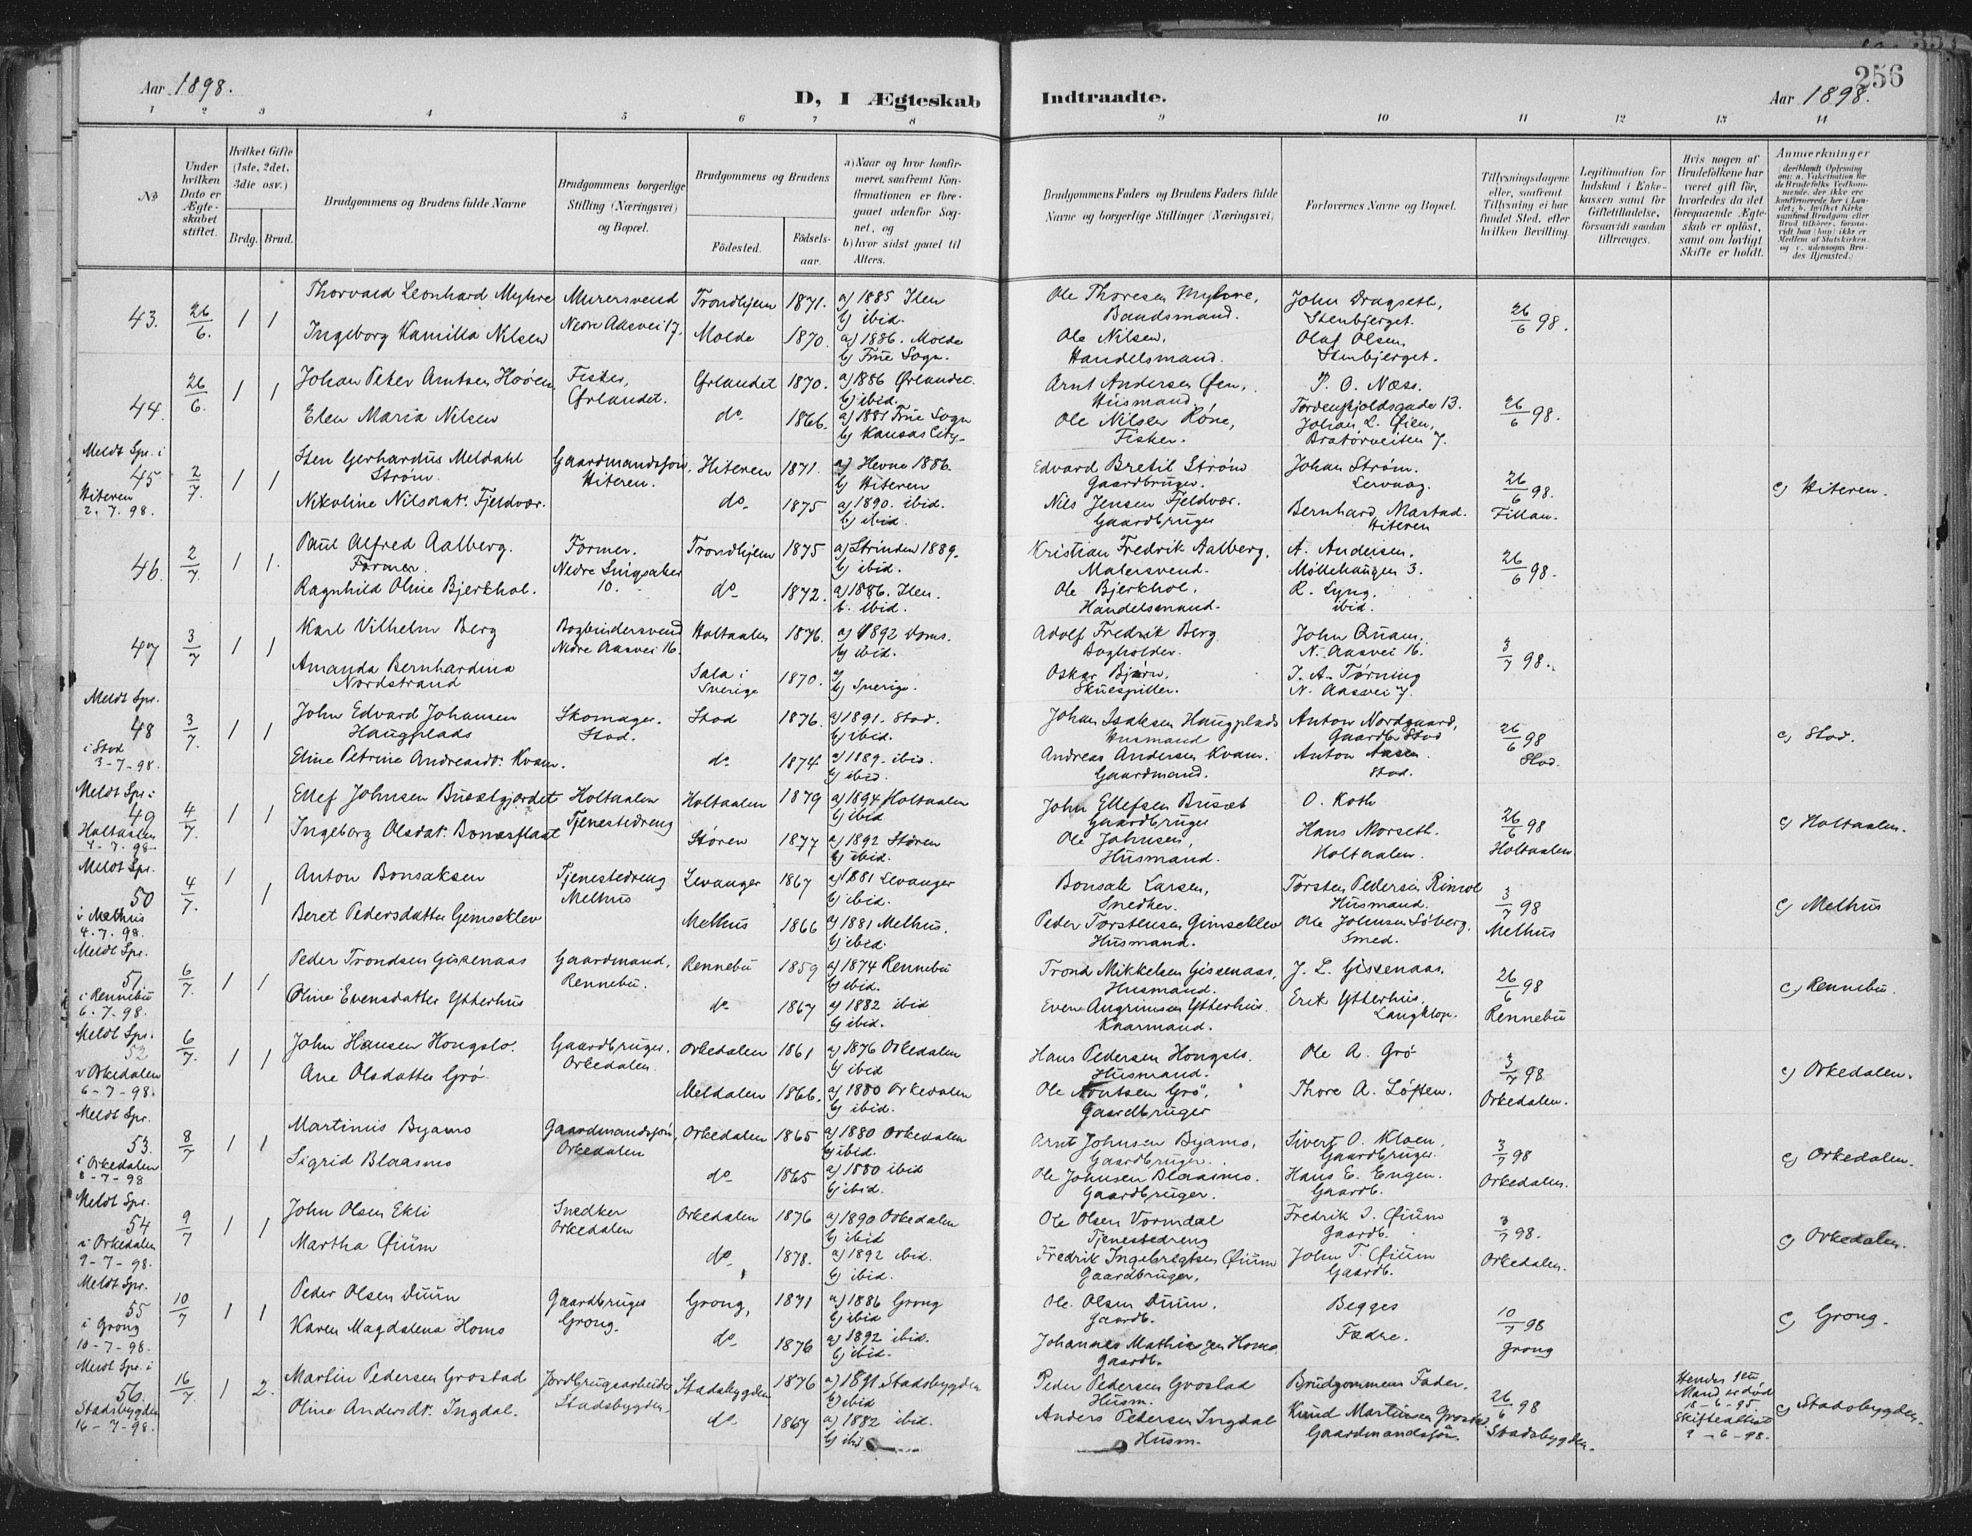 256
Aar 1898.
D, I Ægteskab Indtraadte.
Aar 1898.
1 2 3 4 5 6 7 8 9 10 11 12 13 14
No
Under hvilken Dato er Ægteskabet stiftet.
Hvilket Gifte (1ste, 2det, 3die osv.)
Brdg. Brud.
Brudgommens og Brudens fulde Navne
Brudgommens borgerlige Stilling (Næringsvei) og Bopæl.
Brudgommens og Brudens
Fødested. Fødselsaar.
a) Naar og hvor konfirmeret, saafremt Konfirmationen er foregaaet udenfor Sognet, og
b) hvor sidst gaaet til Alters.
Brudgommens Faders og Brudens Faders fulde Navne og borgerlige Stillinger (Næringsvei.)
Forlovernes Navne og Bopæl.
Tillysningsdagene eller, saafremt Tillysning ei har fundet Sted, efter hvilken Bevilling
Legitimation for Indskud i Enkekassen samt for Giftetilladelse, forsaavidt saadan tiltrænges.
Hvis nogen af Brudefolkene har været gift før, hvorledes da det foregaaende Ægteskab er opløst, samt om lovligt Skifte er holdt.
Anmærkninger
43. 26/6. 1 1 Thorvald Leonhard Myhre Murersvend Trondhjem 1871. a) 1885 Ilen Ole Thoresen Myhre, John Dragseth, 26/6 98.
Nedre Aasvei 17. b) ibid. Baandsmand. Stenbjerget.
Ingeborg Kamilla Nilsen Molde 1870. a) 1886. Molde Ole Nilsen, Olaf Olsen
b) Frue Sogn. Handelsmand. Stenbjerget.
44. 26/6. 1 1 Johan Peter Arntsen Fisker, Ørlandet 1870. a) 1886 Ørlandet. Arnt Andersen Øien, P. O. Næss. 26/6 98.
Ørlandet. b) ibid. Husmand. Tordenskjoldsgade 13.
Elen Maria Nilsen do 1866. a) 1881 Frue Sogn Ole Nilsen Røne, Johan L. Øien,
b) Kansas City. Fisker. Bratørveiten 7.
Meldt Spr. i
45 2/7. 1 1 Sten Gerhardus Meldahl Gaardmandssøn, Hiteren 1871. a) Hevne 1886. Edvard Bretil Strøm Johan Strøm. 26/6 98. c) Hiteren.
Strøm. Hiteren. b) Hiteren Gaardbruger. Lervaag.
Hiteren
2. 7. 98. Nikoline Nilsdat. Fjeldvær. do 1875 a) 1890. ibid. Nils Jensen Fjeldvær. Bernhard Mastad. Fillan.
b) ibid. Gaardbruger Hiteren
46. 2/7. 1 1. Paul Alfred Aalberg. Former. Trondhjem 1875 a) Strinden 1889. Kristian Fredrik Aalberg. A. Andersen. 26/6 98.
Former. Nedre Singsaker 10. b) ibid. Malersvend. Møllehaugen 3.
Ragnhild Oline Bjerkhol. do 1872. a) 1886. Ilen. Ole Bjerkhol, R. Lyng.
b. ibid. Handelsmand. ibid.
47 3/7 1 1 Karl Vilhelm Berg Bogbindersvend Holtaalen 1876. a) 1892 Doms. Adolf Fredrik Berg John Quam. 3/7 98.
Nedre Aasvei 16. b) ibid. Bogholder. N. Aasvei 16.
Amanda Bernhardina Sala i 1870. a) Oskar Bjørn, I. A. Tørning
Nordstrand Sverige b) Sverige. Skuespiller. N. Aasvei 7.
Meldt Spr.
48 3/7. 1 1 John Edvard Johansen Skomager. Stod 1876. a) 1891. Stod. Johan Isaksen Haugplads Anton Nordgaard, 26/6 98 c) Stod.
i Stod Haugplads Stod. b) ibid. Husmand Gaardb. Stod
3-7-98. Eline Petrine Andreasdt. Kvam. do 1874 a) 1889. ibid. Andreas Andersen Kvam. Anton Aasen Stod.
b) ibid. Gaardmand. Stod.
Meldt Spr. i
49 4/7. 1 1 Ellef Johnsen Busetgjordet Holtaalen Holtaalen 1879 a) 1894 Holtaalen John Ellefsen Buseth O. Koth 26/6 98 c) Holtaalen.
Holtaalen Tjenestedreng b) ibid Gaardbruger
4-7-98. Ingeborg Olsdat. Støren 1877 a) 1892 Støren Ole Johnsen, Hans Morseth. Holtaalen
b) ibid. Husmand. Holtaalen.
Meldt Spr.
50 4/7. 1 1 Anton Bonsaksen Tjenestedreng Levanger 1867 a) 1881 Levanger Bonsak Larsen, Torsten Pedersen Rimol 3/7 98 c) Melhus
i Melhus Melhus b) ibid. Snedker. Husmand.
4. 7. 98. Beret Pedersdatter Gimseklev Melhus 1866 a) 1881 Melhus. Peder Torstensen Gimseklev Ole Johnsen Søberg. Melhus
b) ibid. Husmand. Smed.
Meldt Spr.
51. 6/7. 1 1 Peder Trondsen Gissenaas Gaardmand, Rennebu 1859 a) 1874 Rennebu Trond Mikkelsen Gissenaas, J. L. Gissenaas. 26/6 98 c) Rennebu.
i Rennebu Rennebu. b) ibid. Husmand.
6. 7. 98. Oline Evensdatter Ytterhus do 1867 a) 1882 ibid Even Angrimsen Ytterhus. Erik Ytterhus. Rennebu
b) ibid. Kaarmand. Langklop.
Meldt Spr.
52 6/7. 1 1 John Hansen Hongslo. Gaardbruger. Orkedalen 1861 a) 1876 Orkedalen Hans Pedersen Hongslo. Ole A. Grø 3/7 98 c) Orkedalen.
v Orkedalen Orkedalen. b) ibid Husmand.
6-7-98. Ane Olsdatter Grø. Meldalen 1866. a) 1880 Orkedalen Ole Arntsen Grø, Thore A. Løften. Orkedalen.
b) ibid. Gaardbruger
Meldt Spr.
53. 8/7 1 1 Martinus Byamo Gaardmandssøn, Orkedalen 1865 a) 1880 Orkedalen Arnt Johnsen Byamo, Sivert O. Kloen. 3/7 98 c) Orkedalen.
i Orkedalen Orkedalen b) ibid. Gaardbruger. Gaardbruger.
8-7-98 Sigrid Blaasmo do 1865 a) 1880 ibid Ole Johnsen Blaasmo. Hans E. Engen. Orkedalen.
b) ibid. Gaardbruger. Gaardb.
Meldt Spr.
54 9/7 1 1 John Olsen Ekli Snedker Orkedalen 1876 a) 1890 Orkedalen Ole Olsen Vormdal Fredrik I. Øium 3/7 98. c) Orkedalen.
i Orkedalen Orkedalen b) ibid Tjenestedreng Gaardb.
9-7-98. Martha Øium do 1878. a) 1892 ibid. Fredrik Ingebregtsen Øium John T. Øium Orkedalen.
b) ibid. Gaardbruger. Gaardb.
Meldt Spr.
55 10/7 1 1 Peder Olsen Duun Gaardbruger Grong, 1871 a) 1886 Grong Ole Olsen Duun. Begges 10/7 98 c) Grong.
i Grong Grong. b) ibid Gaardb. Fædre.
10-7-98. Karen Magdalena Homo do 1876 a) 1892 ibid. Johannes Mathiasen Homo. Grong
b) ibid. Gaardb.
Meldt Spr. i
56. 16/7 1 2. Martin Pedersen Grostad Jordbrugsarbeider Stadsbygden 1876 a) 1891 Stadsbygden Peder Pedersen Grostad Brudgommens Fader. 26/6 98 c) Stadsbygden.
Stadsbygden Stadsbygden. b) ibid Husm.
16-7-98. Oline Andersdt. Ingdal. do 1867 a) 1882 ibid. Anders Pedersen Ingdal Knud Martinsen Grostad Stadsbygden.
b) ibid Husm. Gaardmandssøn.
Mand er død
Skifteattest
9-6-98.